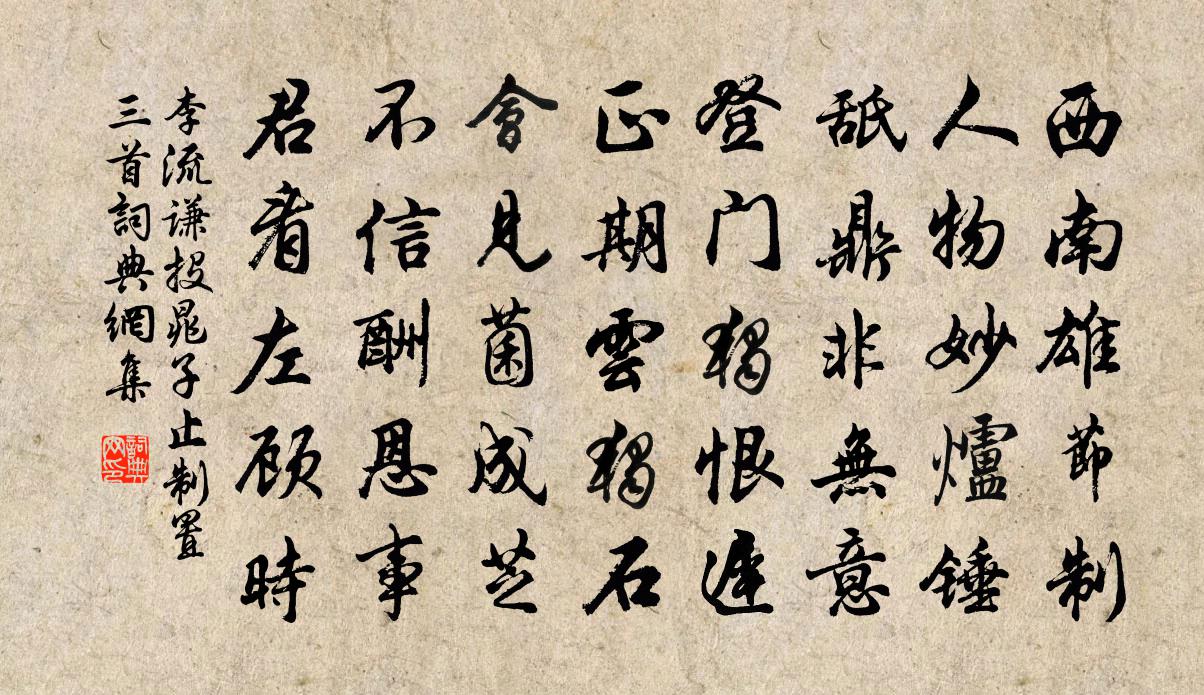 西南雄節制
人物妙爐錘
舐鼎非無意
登门獨恨遲
正期雲獨石
會見菌成芝
不信酬恩事
君看左顾時
李流謙投晁子止制置
三首詞典網集
詞典网印